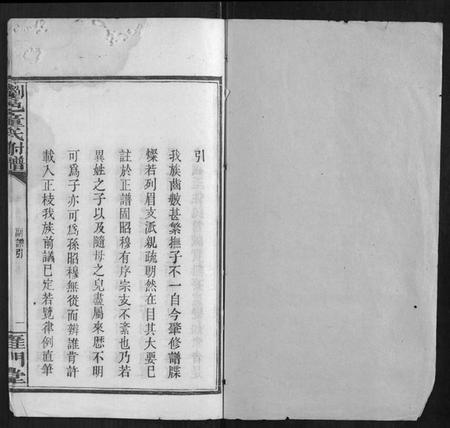 引
我族齒數甚繁撫子不一自今肇修譜牒
燦若列眉支派親疏朗然在目其大要已
註於正譜固昭穆有序宗支不紊也乃若
異姓之子以及隨母之兒盡屬來歷不明
可爲子亦可爲孫昭穆無從而辨誰肯許
載入正枝我族前議已定若覽律例直筆
瀏邑童氏附譜
副譜引
一
雁門堂